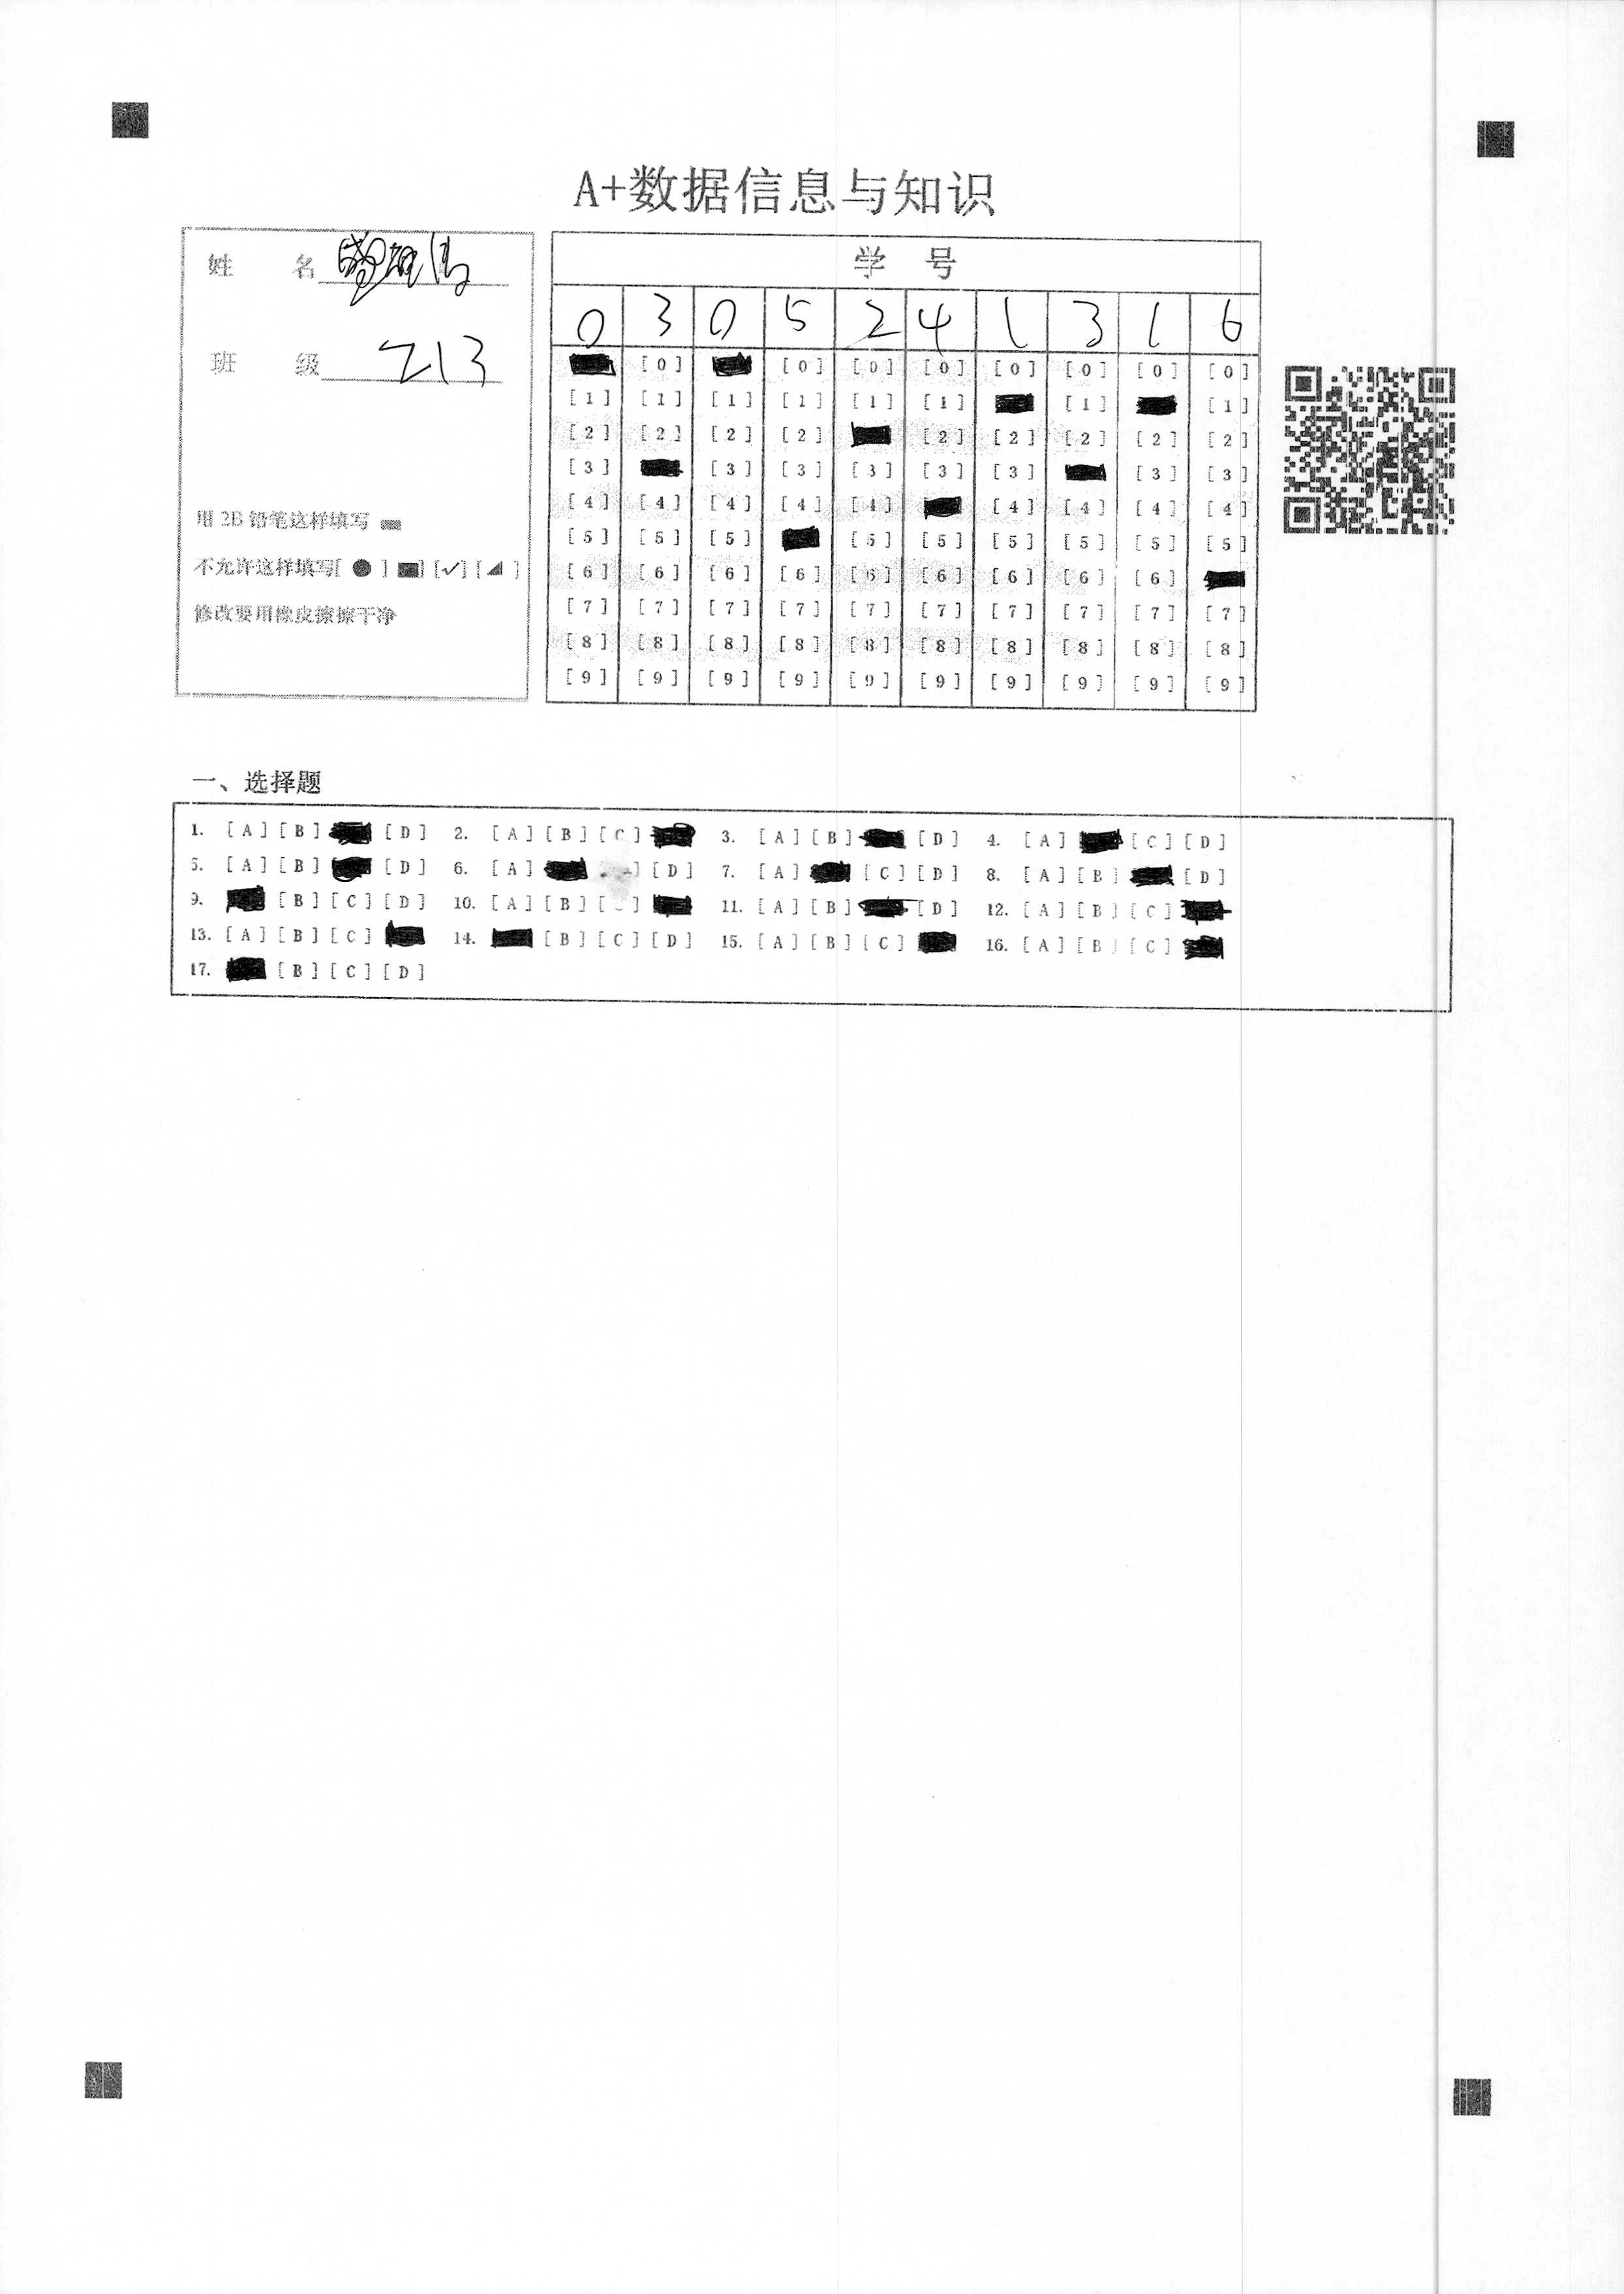 A+数据信息与知识
姓 名
班 级 213
用 2B 铅笔这样填写
不允许这样填写[ ● ] [✓] [ ]
修改要用橡皮擦擦干净
学 号
0 3 0 5 2 4 1 3 1 6
[0] [0] [0] [0] [0] [0] [0] [0]
[1] [1] [1] [1] [1] [1] [1] [1]
[2] [2] [2] [2] [2] [2] [2] [2] [2]
[3] [3] [3] [3] [3] [3] [3] [3]
[4] [4] [4] [4] [4] [4] [4] [4] [4]
[5] [5] [5] [5] [5] [5] [5] [5] [5]
[6] [6] [6] [6] [6] [6] [6] [6] [6]
[7] [7] [7] [7] [7] [7] [7] [7] [7] [7]
[8] [8] [8] [8] [8] [8] [8] [8] [8] [8]
[9] [9] [9] [9] [9] [9] [9] [9] [9] [9]
一、选择题
1. [A] [B] [D] 2. [A] [B] [C] 3. [A] [B] [D] 4. [A] [C] [D]
5. [A] [B] [D] 6. [A] [D] 7. [A] [C] [D] 8. [A] [B] [D]
9. [B] [C] [D] 10. [A] [B] 11. [A] [B] [D] 12. [A] [B] [C]
13. [A] [B] [C] 14. [B] [C] [D] 15. [A] [B] [C] 16. [A] [B] [C]
17. [B] [C] [D]